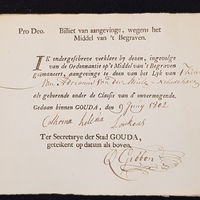 Pro Deo. Billiet van aangevinge, wegens het
Middel van 't Begraven.
IK ondergeschreve verklare by dezen, ingevolge
van de Ordonnantie op 't Middel van 't Begraven
geëmaneert, aangevinge te doen van het Lyk van
van Adrianus van der
als gehoorende onder de Classis van d' onvermogende.
Gedaan binnen GOUDA, den 9 Juny 1802
Cathrina
Ter Secretarye der Stad GOUDA,
geteekent op datum als boven.